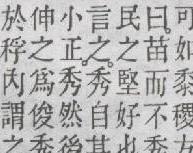 可如黍稷秀
曰苗而不秀
民之堅好也
言之秀自其
小正秀然後
伸之為俊秀
於稃內謂之